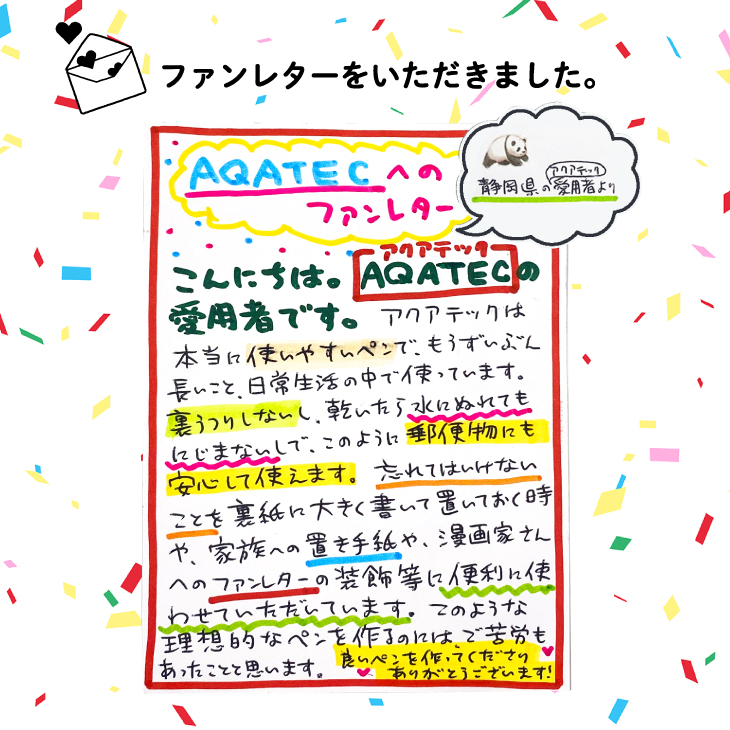 ファンレターをいただきました。
AQATECへの
ファンレター
アクアテック
静岡県の愛用者より
アクアテック
こんにちは。AQATECの
愛用者です。アクアテックは
本当に使いやすいペンで、もうずいぶん
長いこと、日常生活の中で使っています。
裏うつりしないし、乾いたら水にぬれても
にじまないしで、このように郵便物にも
安心して使えます。忘れてはいけない
ことを裏紙に大きく書いて置いておく時
や、家族への置き手紙や、漫画家さん
へのファンレターの装飾等に便利に使
わせていただいています。このような
理想的なペンを作るのには、ご苦労も
あったことと思います。良いペンを作ってくださり
ありがとうございます!